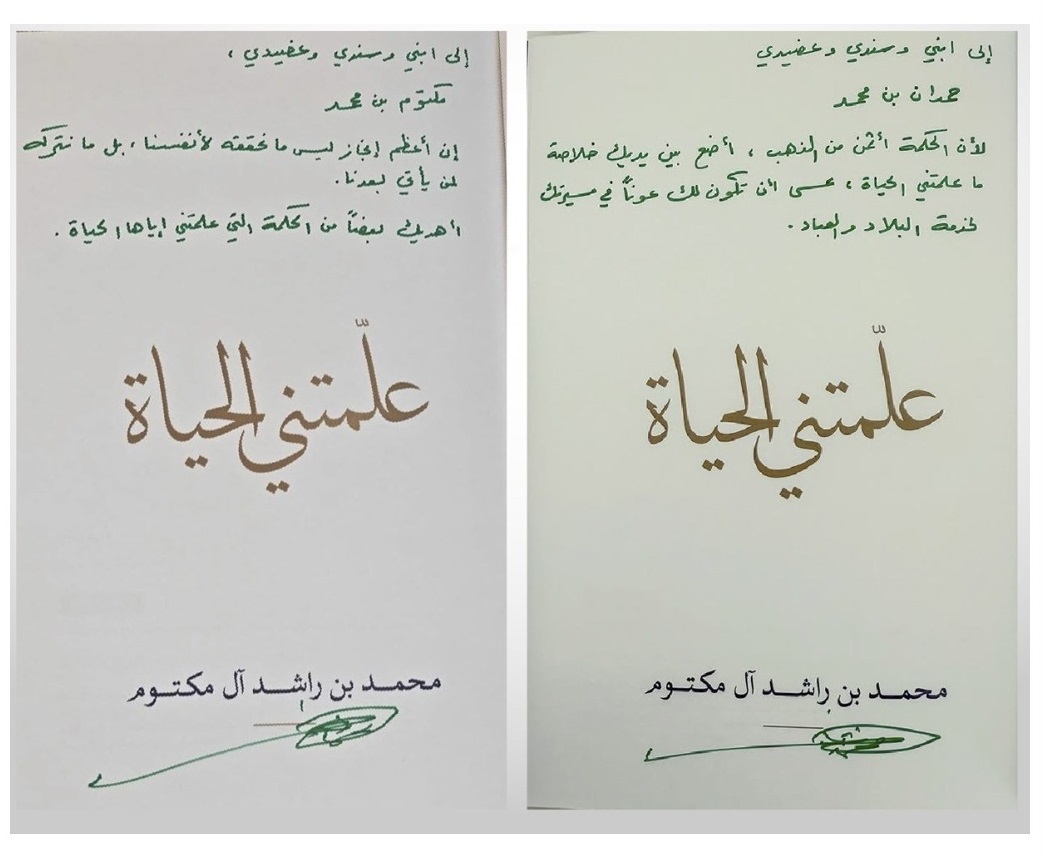 إلى ابني وسندي وعضيدي
حمدان بن محمد
لأن الحكمة أثمن من الذهب ، أضع بين يديك خلاصة
ما علمتني الحياة ، عسى أن تكون لك عوناً في مسيرتك
لخدمة البلاد والعباد .
علّمتني الحياة
محمد بن راشد آل مكتوم
إلى ابني وسندي وعضيدي ،
مكتوم بن محمد
إن أعظم إنجاز ليس ما نحققه لأنفسنا ، بل ما نتركه
لمن يأتي بعدنا .
أهديك بعضاً من الحكمة التي علمتني إياها الحياة .
علّمتني الحياة
محمد بن راشد آل مكتوم